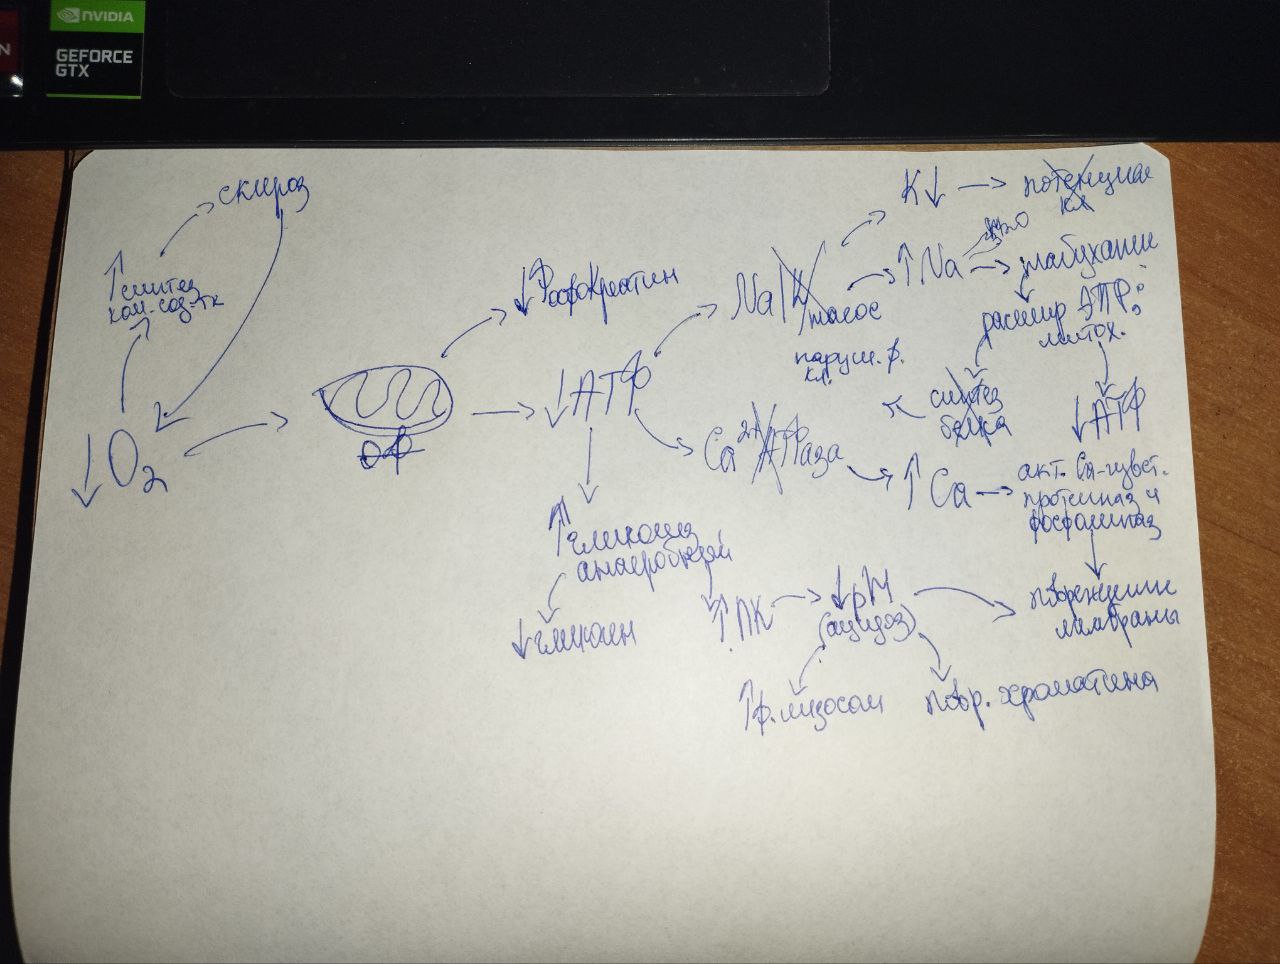 NVIDIA
GEFORCE
GTX
N
склероз
↑ синтез
кол-сод-тк
↓ O₂
ОФ
↓ Фосфокреатин
↓ АТФ
Na/K
насос
наруш. ф.
кл.
K↓ → потенциал
кл
↑ Na → набухание
H₂O
расшир ЭПР;
митох.
синтез
белка
↓ АТФ
Ca²⁺ АТФаза
↑ Ca → акт. Ca-чувст.
протеиназ и
фосфолипаз
↑ гликолиз
анаэробный
↓ гликоген
↑ ПК → ↓ pH
(ацидоз)
повреждение
мембраны
↑ ф. лизосом
повр. хроматина